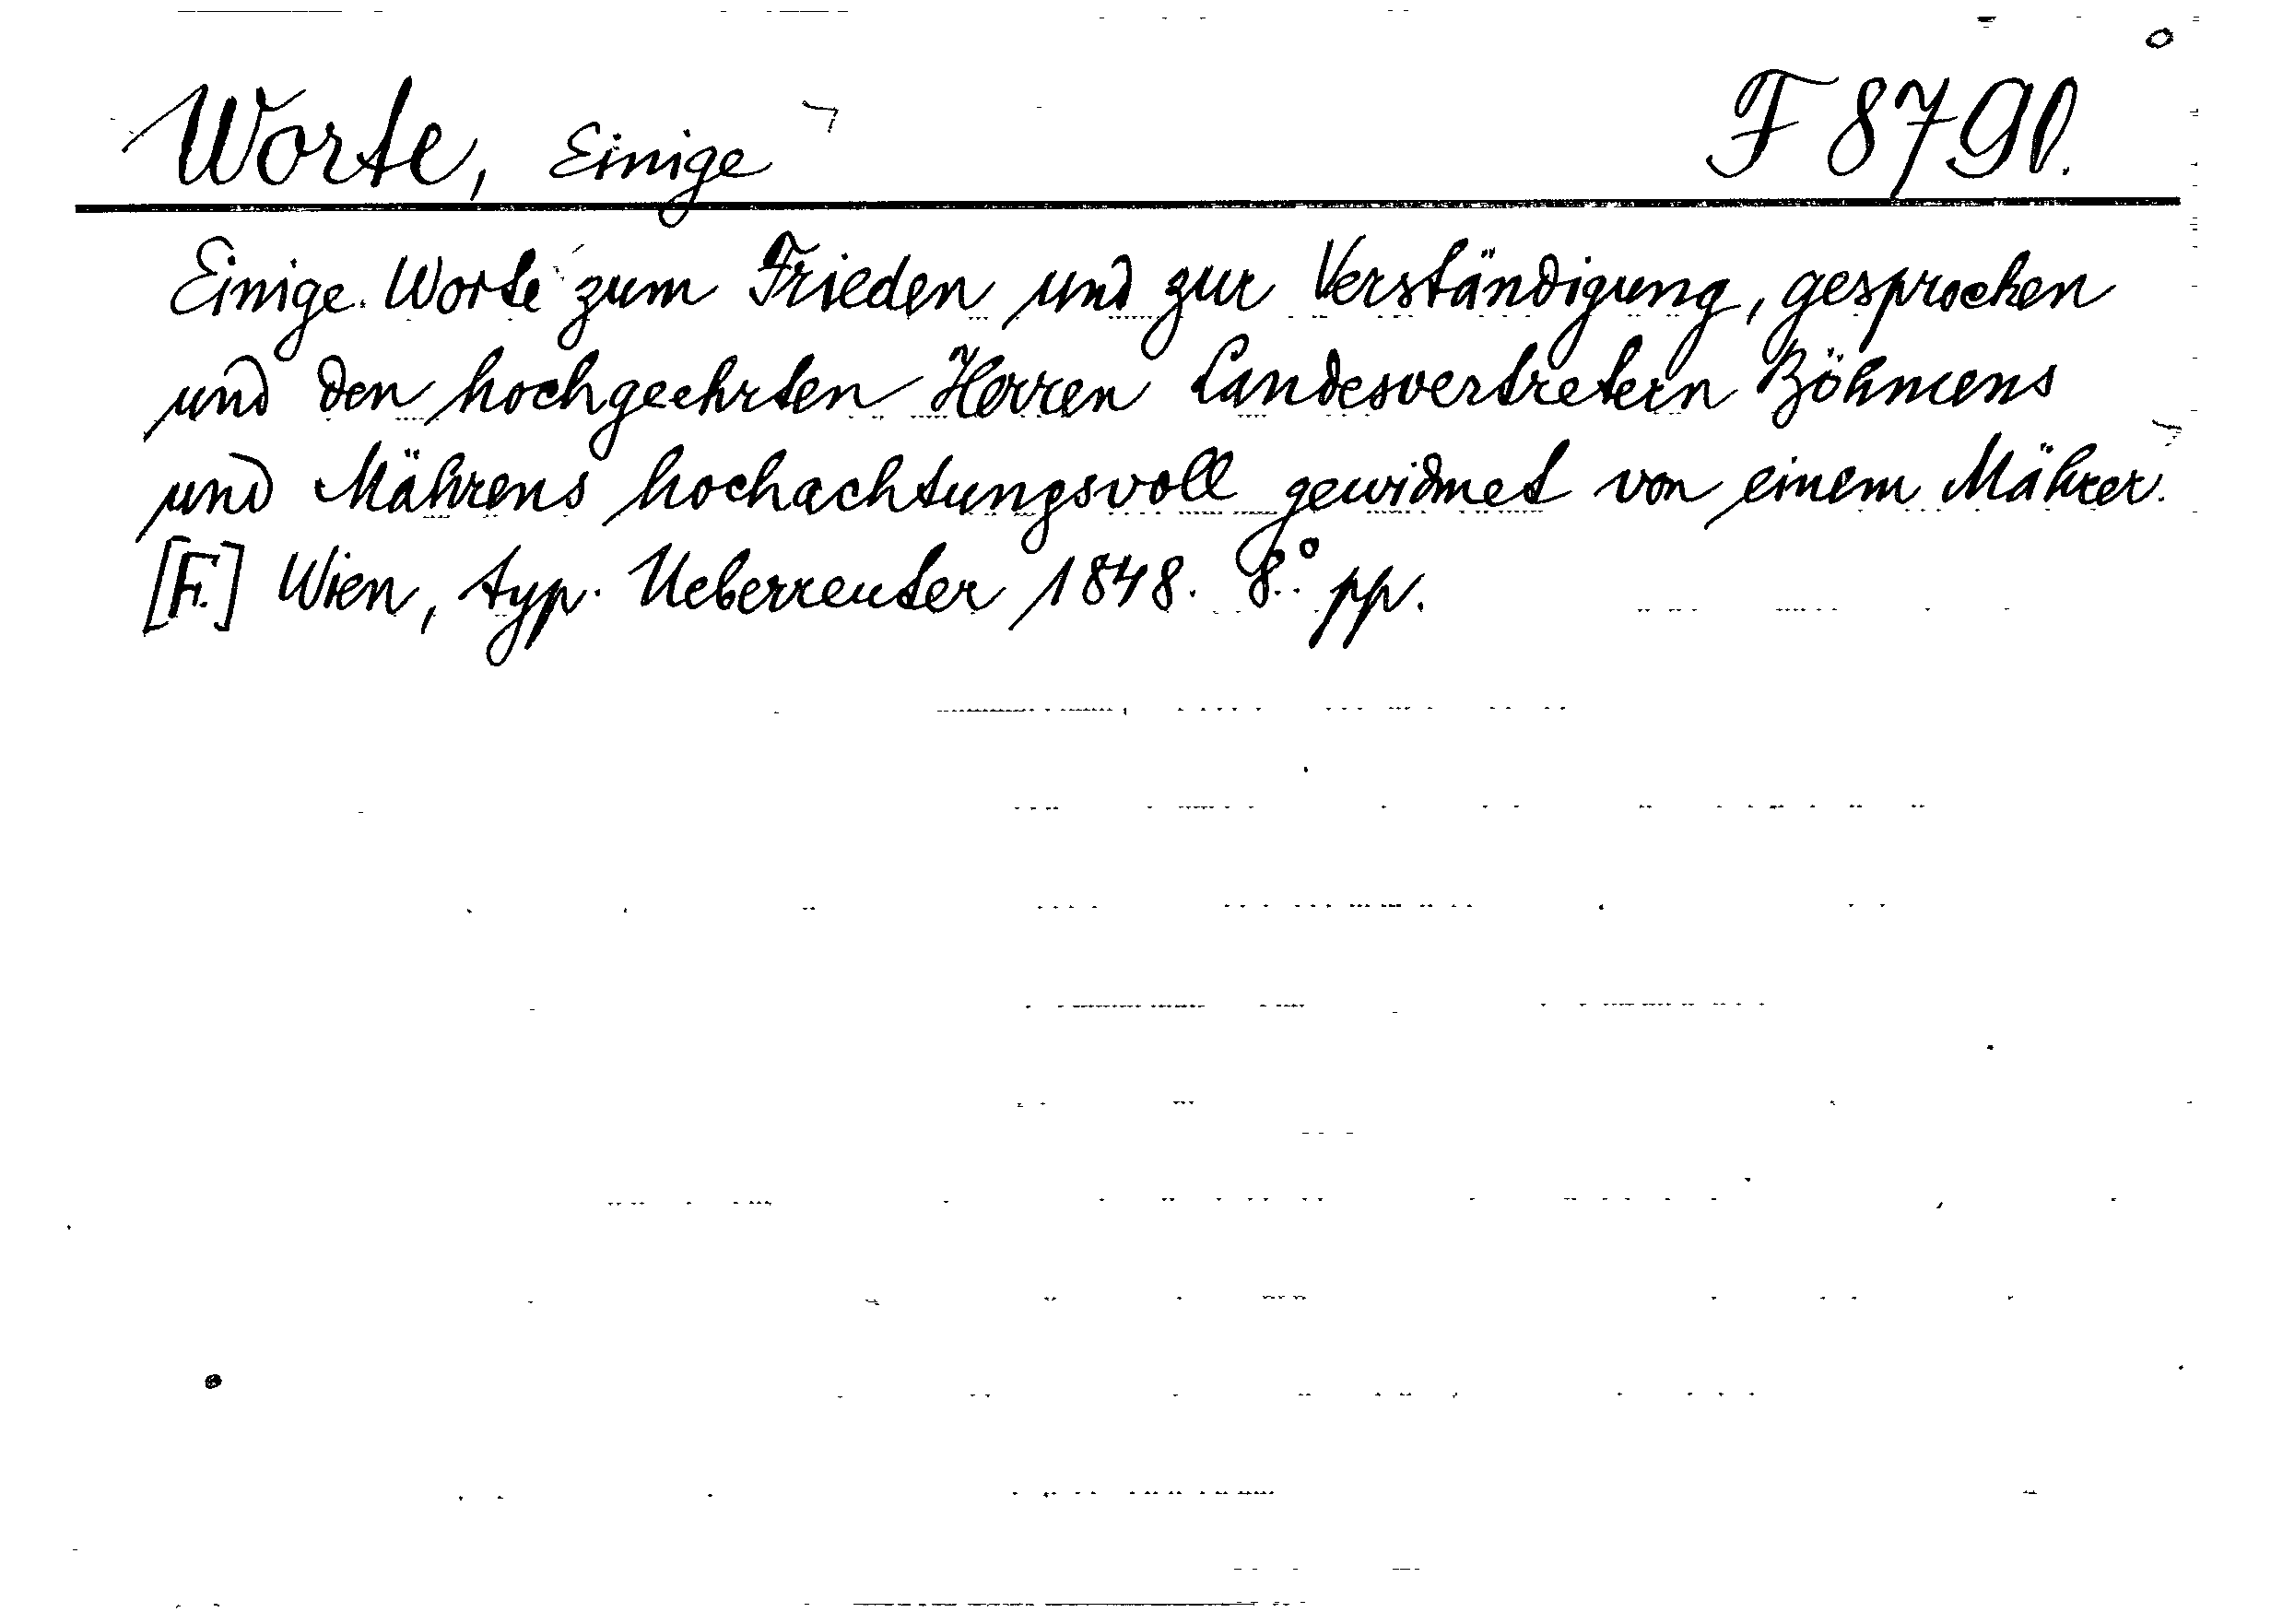 Worte, Einige F 8790.
Einige Worte zum Frieden und zur Verständigung, gesprochen
und den hochgeehrten Herren Landesvertretern Böhmens
und Mährens hochachtungsvoll gewidmet von einem Mährer.
[Fr.] Wien, typ. Ueberreuter 1848. 8.° pp.